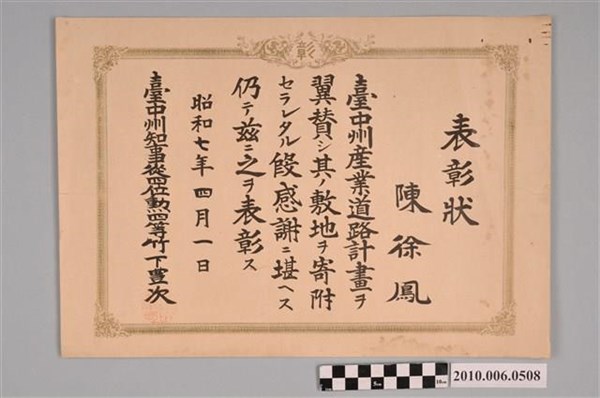 彰
表彰狀
陳徐鳳
臺中州産業道路計畫ヲ
翼賛シ其ノ敷地ヲ寄附
セラレタル段感謝ニ堪ヘス
仍テ玆ニ之ヲ表彰ス
昭和七年四月一日
臺中州知事從四位勳四等竹下豐次
5cm
10cm
2010.006.0508